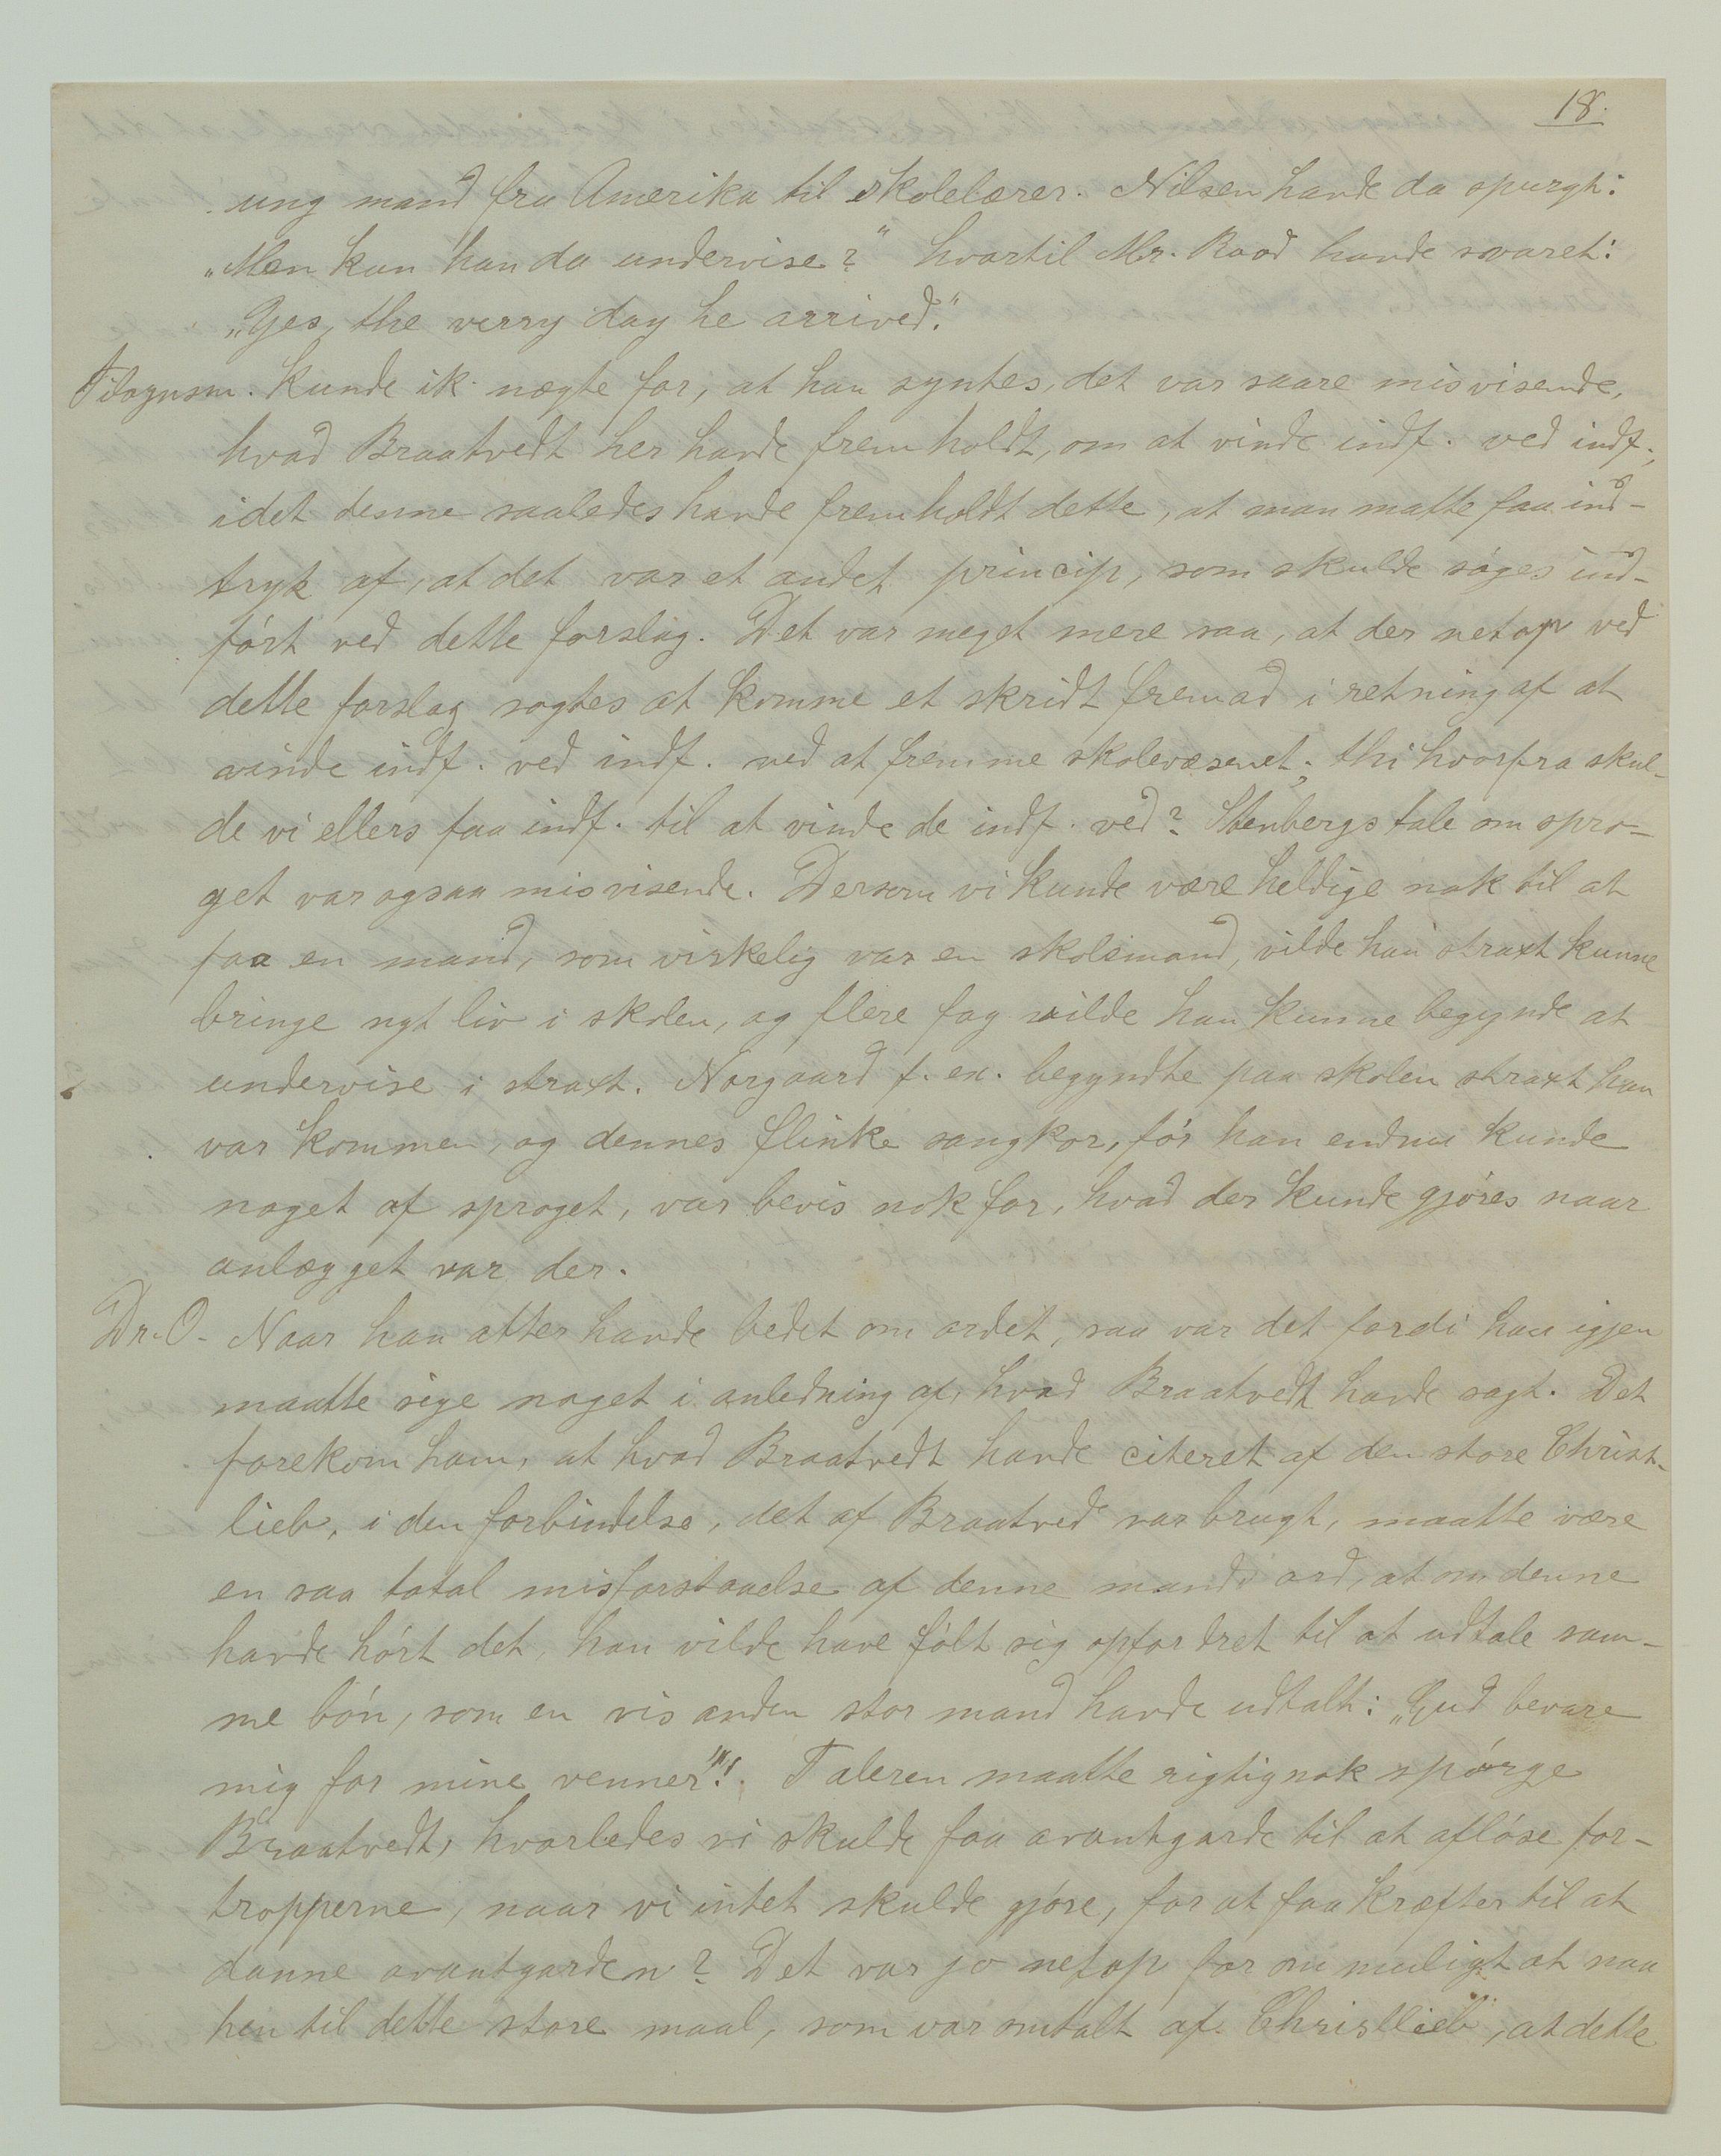 18.
ung mand fra Amerika til skolelærer. Nilsen havde da spurgt:
„Men kan han da undervise?" hvortil Mr. Rood havde svaret:
„Yes, the verry day he arrived."
kunde ik. nægte for, at han syntes, det var saare misvisende,
hvad Braatvedt her havde fremholdt, om at vinde indf. ved indf.,
idet denne saaledes havde fremholdt dette, at man matte faa ind-
tryk af, at det var et andet princip, som skulde søges ind-
ført ved dette forslag. Det var meget mere saa, at der netop ved
dette forslag søgtes at komme et skridt fremad i retning af at
vinde indf. ved indf. ved at fremme skolevæsenet; thi hvorfra skul-
de vi ellers faa indf. til at vinde de indf. ved? Stenbergs tale om spro-
get var ogsaa misvisende. Dersom vi kunde være heldige nok til at
faa en mand, som virkelig var en skolemand, vilde han straxt kunne
bringe nyt liv i skolen, og flere fag vilde han kunne begynde at
undervise i straxt. Norgaard f. ex. begyndte paa skolen straxt han
var kommen, og dennes flinke sangkor, før han endnu kunde
noget af sproget, var bevis nok for, hvad der kunde gjøres naar
anlægget var der.
Dr. O. Naar han atter havde bedet om ordet, saa var det fordi han igjen
maatte sige noget i anledning af, hvad Braatvedt havde sagt. Det
forekom ham, at hvad Braatvedt havde citeret af den store Christ-
lieb, i den forbindelse, det af Braatved var brugt, maatte være
en saa total misforstaaelse af denne mands ord, at om denne
havde hørt det, han vilde have følt sig opfordret til at udtale sam-
me bøn, som en vis anden stor mand havde udtalt: „Gud bevare
mig for mine venner"! Taleren maatte rigtignok spørge
Braatvedt, hvorledes vi skulde faa avantgarde til at afløse for-
tropperne, naar vi intet skulde gjøre, for at faa kræfter til at
danne avantgarden? Det var jo netop for om muligt at naa
hen til dette store maal, som var omtalt af Christlieb, at dette